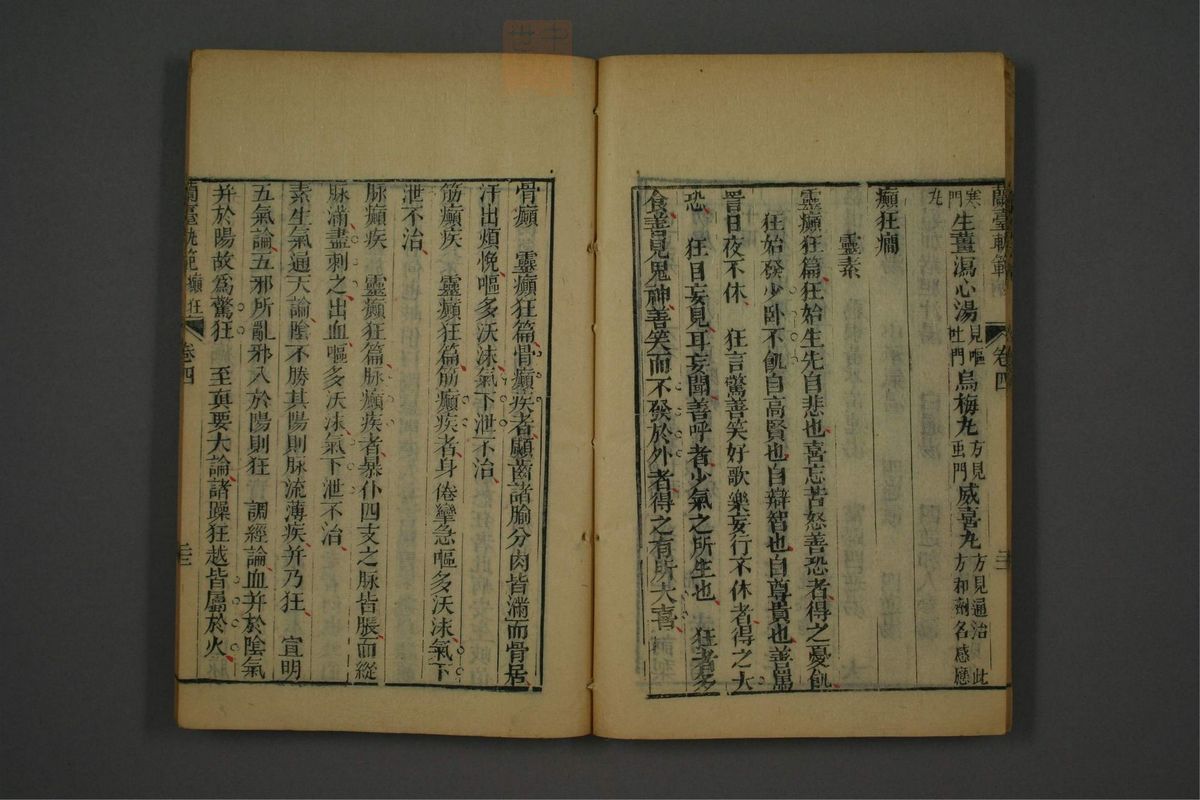 蘭臺軌範 卷四
寒門 生薑瀉心湯 見嘔吐門 烏梅丸 方見虫門 威喜丸 方見通治 此方和劑名感應
丸
癲狂癎
靈素
靈癲狂篇狂始生先自悲也喜忘苦怒善恐者得之憂飢
狂始發少卧不飢自高賢也自辯智也自尊貴也善罵
詈日夜不休 狂言驚善笑好歌樂妄行不休者得之大
恐 狂目妄見耳妄聞善呼者少氣之所生也 狂者多
食善見鬼神善笑而不發於外者得之有所大喜
骨癲 靈癲狂篇骨癲疾者顑齒諸腧分肉皆滿而骨居
汗出煩悗嘔多沃沫氣下泄不治
筋癲疾 靈癲狂篇筋癲疾者身倦攣急嘔多沃沫氣下
泄不治
脉癲疾 靈癲狂篇脉癲疾者暴仆四支之脉皆脹而縱
脉滿盡刺之出血嘔多沃沫氣下泄不治
素生氣通天論陰不勝其陽則脉流薄疾并乃狂 宣明
五氣論五邪所亂邪入於陽則狂 調經論血并於陰氣
并於陽故爲驚狂 至真要大論諸躁狂越皆屬於火
蘭臺軌範 癲狂 卷四 三